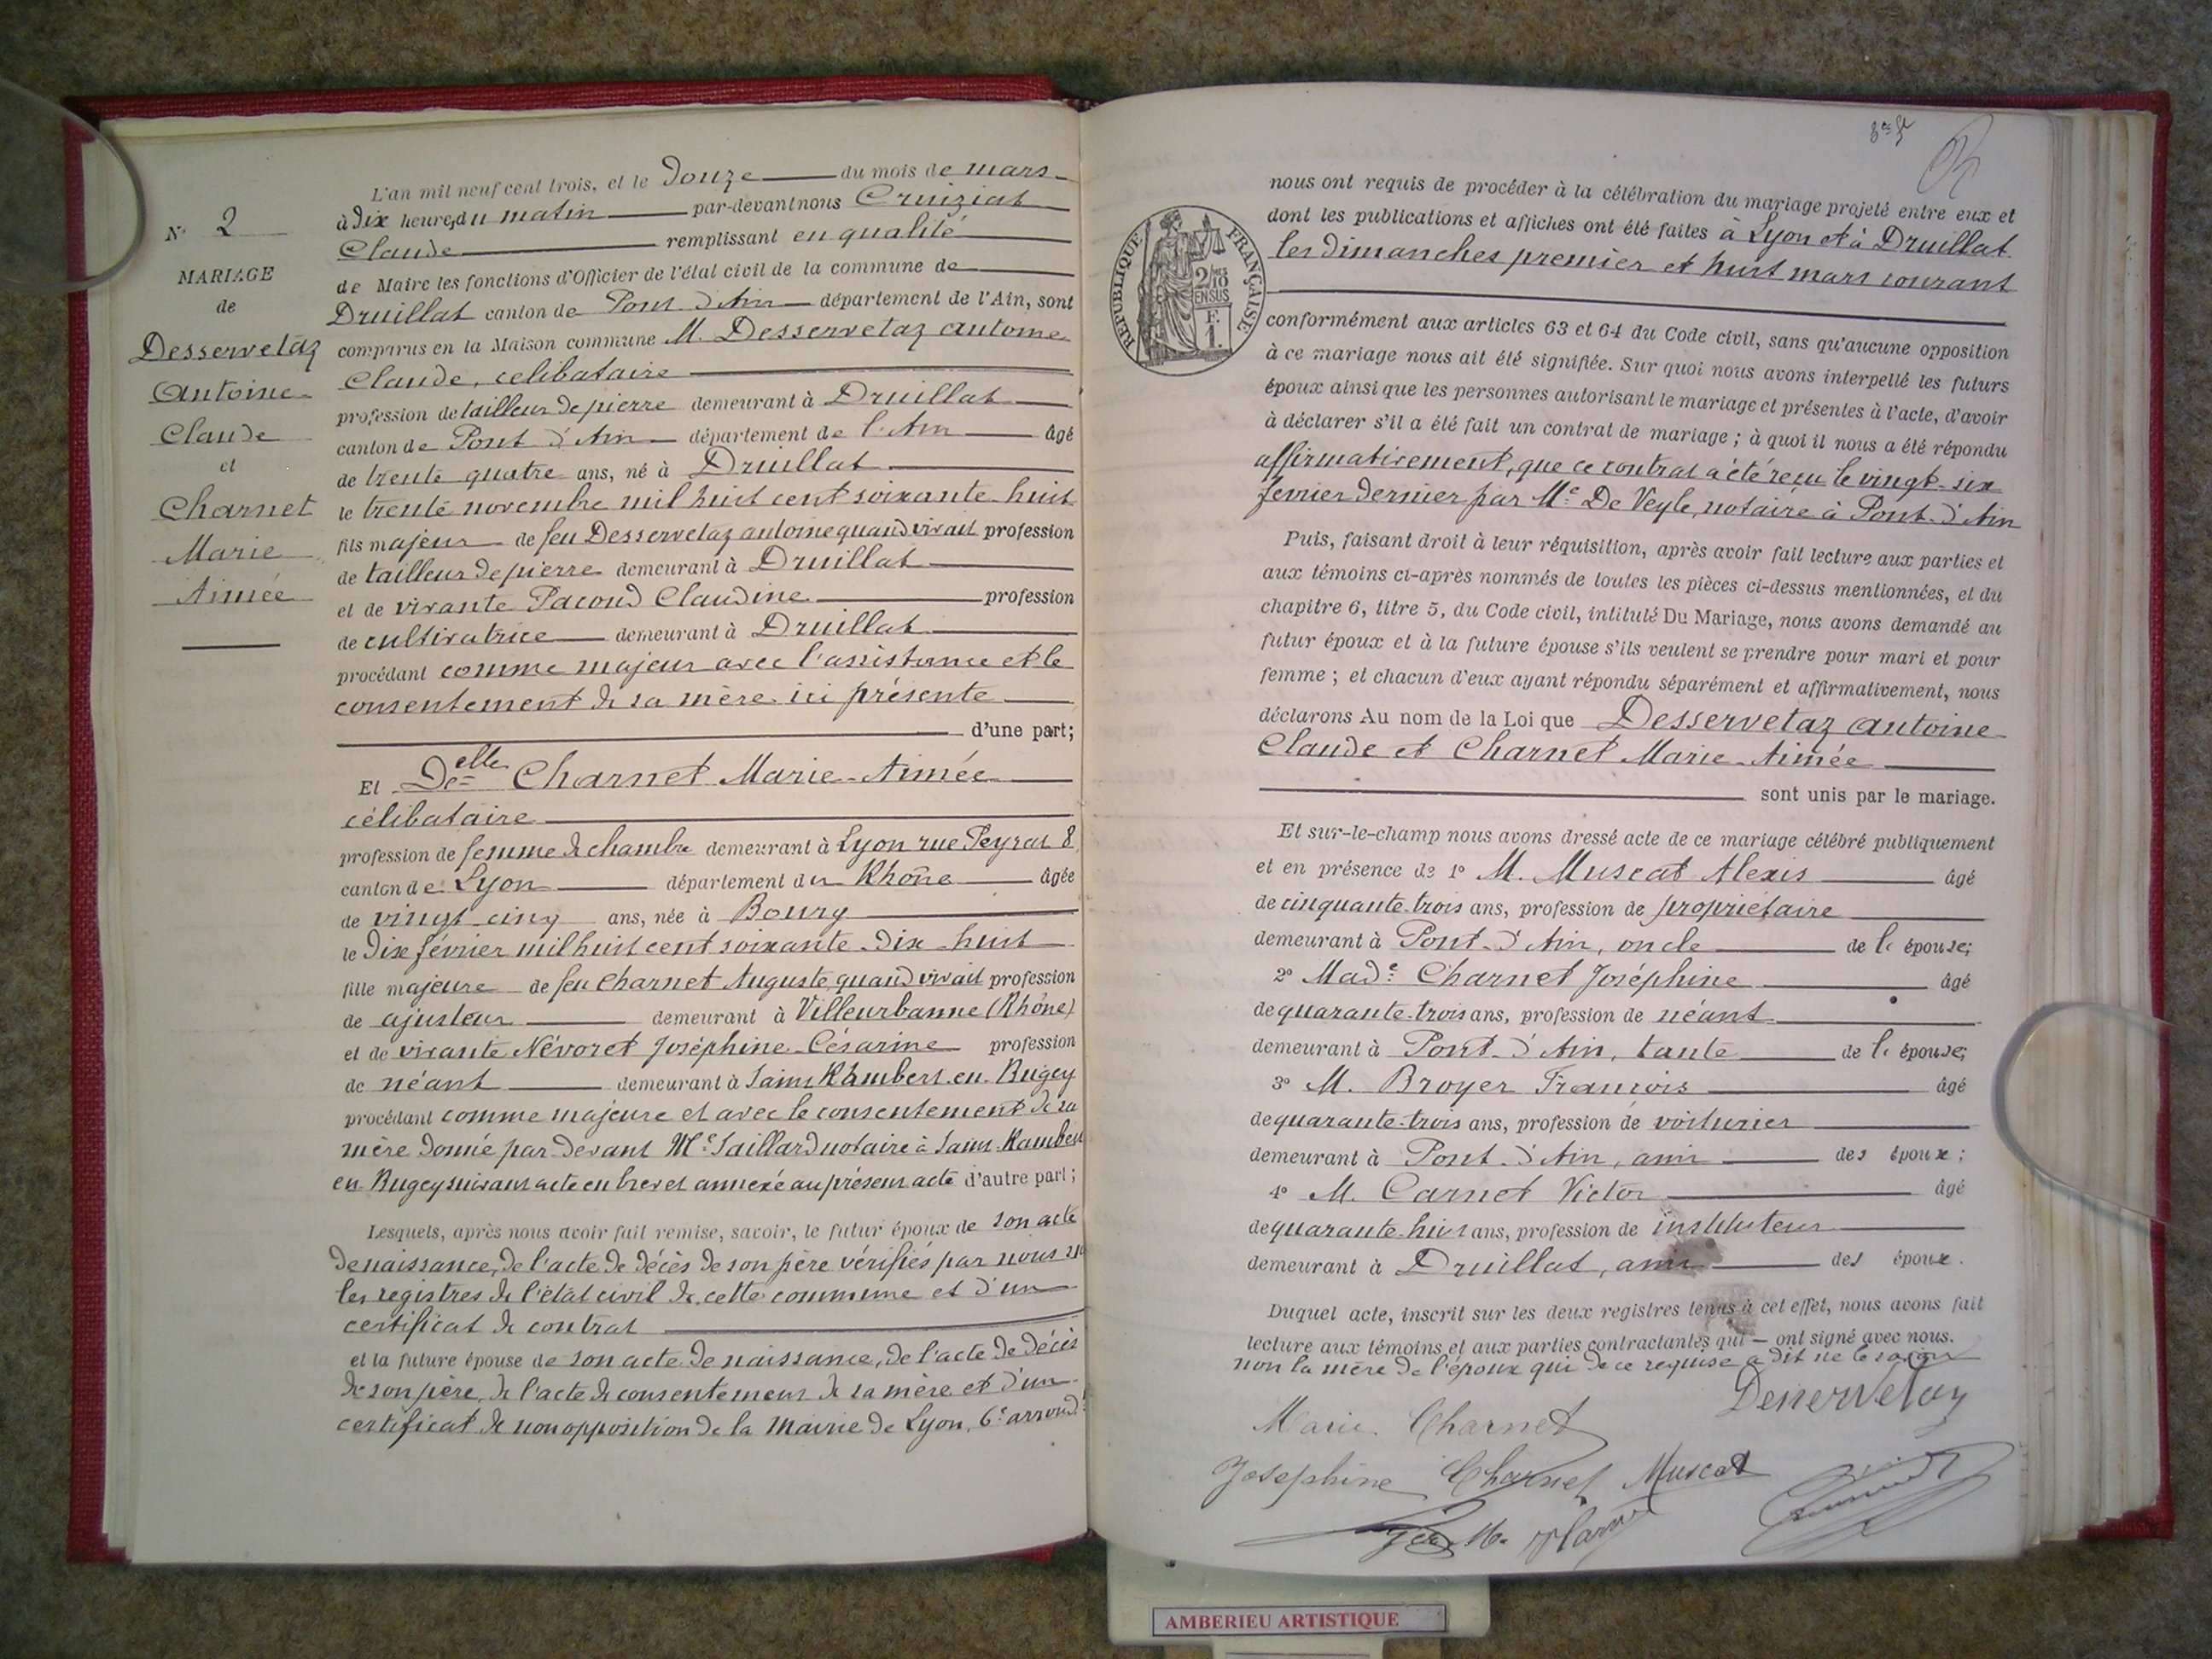 N° 2
MARIAGE
de
Desservetaz
Antoine
Claude
et
Charnet
Marie
Aimée
L'an mil neuf cent trois, et le Douze du mois de mars
à Dix heures du matin par-devant nous Cruiziat
Claude remplissant en qualité
de Maire les fonctions d'Officier de l'état civil de la commune de
Druillat canton de Pont d'Ain département de l'Ain, sont
comparus en la Maison commune M. Desservetaz antoine
Claude, celibataire
profession de tailleur de pierre demeurant à Druillat
canton de Pont d'Ain département de l'Ain âgé
de trente quatre ans, né à Druillat
le trente novembre mil huit cent soixante huit
fils majeur de feu Desservetaz antoine quand vivait profession
de tailleur de pierre demeurant à Druillat
et de vivante Pacoud Claudine profession
de cultivatrice demeurant à Druillat
procédant comme majeur avec l'assistance et le
consentement de sa mère ici présente
d'une part;
Et Delle Charnet Marie-Aimée
célibataire
profession de femme de chambre demeurant à Lyon rue Peyrat 8
canton de Lyon département du Rhône âgée
de vingt cinq ans, née à Bourg
le Dix février mil huit cent soixante-dix-huit
fille majeure de feu Charnet Auguste quand vivait profession
de ajusteur demeurant à Villeurbanne (Rhône)
et de vivante Névoret Joséphine-Césarine profession
de néant demeurant à Saint Rambert en Bugey
procédant comme majeure et avec le consentement de sa
mère donné par devant Me Saillard notaire à Saint-Rambert
en Bugey suivant acte en brevet annexé au présent acte d'autre part;
Lesquels, après nous avoir fait remise, savoir, le futur époux de son acte
de naissance, de l'acte de décès de son père vérifiés par nous sur
les registres de l'état civil de cette commune et d'un
certificat de contrat
et la future épouse de son acte de naissance, de l'acte de décès
de son père, de l'acte de consentement de sa mère et d'un
certificat de non opposition de la Mairie de Lyon, 6e arrondt
REPUBLIQUE FRANÇAISE
2/10
EN SUS
F.
1.
nous ont requis de procéder à la célébration du mariage projeté entre eux et
dont les publications et affiches ont été faites à Lyon et à Druillat
les dimanches premier et huit mars courant
conformément aux articles 63 et 64 du Code civil, sans qu'aucune opposition
à ce mariage nous ait été signifiée. Sur quoi nous avons interpellé les futurs
époux ainsi que les personnes autorisant le mariage et présentes à l'acte, d'avoir
à déclarer s'il a été fait un contrat de mariage ; à quoi il nous a été répondu
affirmativement, que ce contrat a été reçu le vingt-six
fevrier dernier par Me De Veyle, notaire à Pont-d'Ain
Puis, faisant droit à leur réquisition, après avoir fait lecture aux parties et
aux témoins ci-après nommés de toutes les pièces ci-dessus mentionnées, et du
chapitre 6, titre 5, du Code civil, intitulé Du Mariage, nous avons demandé au
futur époux et à la future épouse s'ils veulent se prendre pour mari et pour
femme ; et chacun d'eux ayant répondu séparément et affirmativement, nous
déclarons Au nom de la Loi que Desservetaz antoine
Claude et Charnet Marie-Aimée
sont unis par le mariage.
Et sur-le-champ nous avons dressé acte de ce mariage célébré publiquement
et en présence de 1° M. Muscat Alexis âgé
de cinquante-trois ans, profession de propriétaire
demeurant à Pont-d'Ain, oncle de l'épouse;
2° Made Charnet Joséphine âgé
de quarante-trois ans, profession de néant
demeurant à Pont-d'Ain, tante de l'épouse;
3° M. Broyer François âgé
de quarante-trois ans, profession de voiturier
demeurant à Pont-d'Ain, ami des époux;
4° M. Carnet Victor âgé
de quarante-huit ans, profession de instituteur
demeurant à Druillat, ami des époux.
Duquel acte, inscrit sur les deux registres tenus à cet effet, nous avons fait
lecture aux témoins et aux parties contractantes qui — ont signé avec nous.
non la mère de l'époux qui de ce requise a dit ne le savoir
Desservetaz
Marie Charnet
Josephine Charnet Muscat
AMBERIEU ARTISTIQUE